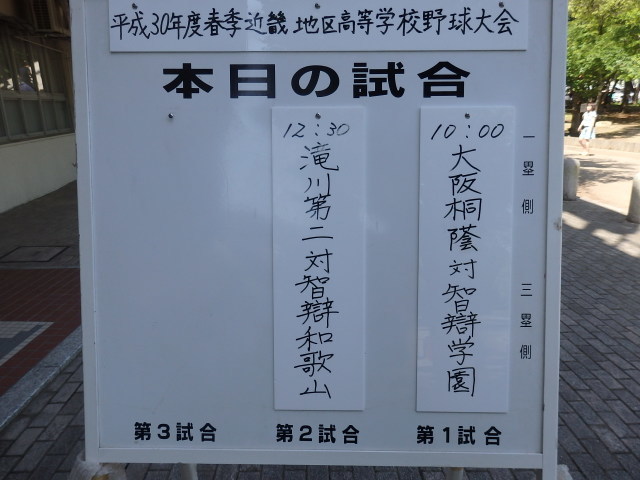 平成30年度春季近畿地区高等学校野球大会
本日の試合
一塁側 三塁側
10:00
大阪桐蔭対智辯学園
第1試合
12:30
滝川第二対智辯和歌山
第2試合
第3試合